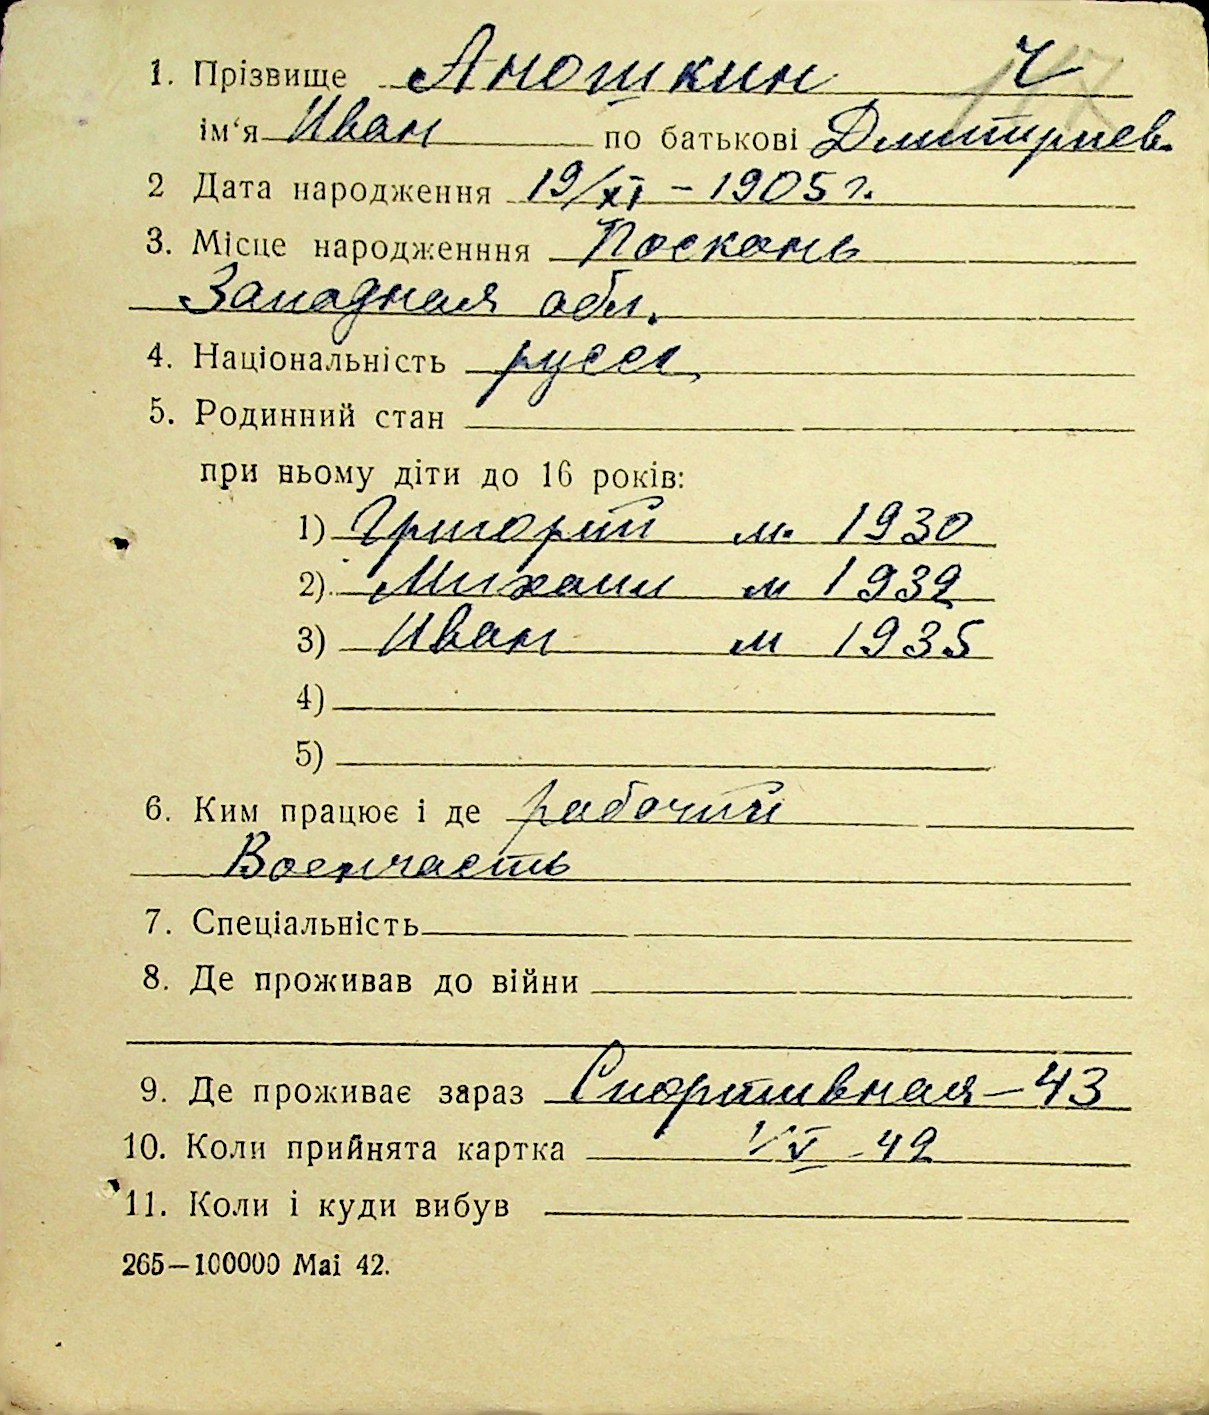 1. Прізвище Аношкин
ім‘я Иван по батькові Дмитриев.
2 Дата народження 19/XI – 1905 г.
3. Місце народженння Поскань
Западная обл.
4. Національність русск.
5. Родинний стан
при ньому діти до 16 років:
1) Григорий м. 1930
2) Михаил м 1932
3) Иван м 1935
4)
5)
6. Ким працює і де рабочий
Военчасть
7. Спеціальність
8. Де проживав до війни
9. Де проживає зараз Спортивная – 43
10. Коли прийнята картка 1/V - 42
11. Коли і куди вибув
265—100000 Mai 42.